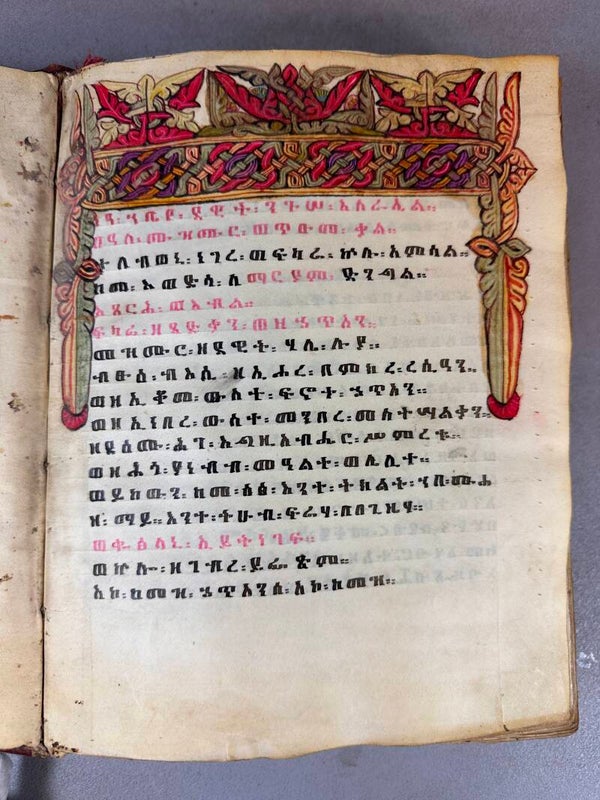 ነዓ፡ ኀቤየ፡ ዳዊት፡ ንጉሠ፡ እስራኤል።
በዓለ፡ መዝሙር፡ ወጥዑመ፡ ቃል።
ተለብወኒ፡ ነገረ፡ ወፍካሬ፡ ኵሉ፡ አምሳል።
ከመ፡ እወድሳ፡ ለማርያም፡ ድንግል።
እጸርሕ፡ ወእብል።
ፍካሬ፡ ዘጻድቃን፡ ወዘኃጥኣን።
መዝሙር፡ ዘዳዊት፡ ሃሌ፡ ሉያ።
ብፁዕ፡ ብእሲ፡ ዘኢሖረ፡ በምክረ፡ ረሲዓን።
ወዘኢቆመ፡ ውስተ፡ ፍኖተ፡ ኃጥኣን።
ወዘኢነበረ፡ ውስተ፡ መንበረ፡ መስተሣልቃን።
ዘዳዕሙ፡ ሕገ፡ እግዚአብሔር፡ ሥምረቱ።
ወዘሕጎ፡ ያነብብ፡ መዓልተ፡ ወሌሊተ።
ወይከውን፡ ከመ፡ ዕፅ፡ እንተ፡ ትክልት፡ ኀበ፡ ሙሐ
ዘ፡ ማይ። እንተ፡ ትሁብ፡ ፍሬሃ፡ በበጊዜሃ።
ወቈፅላኒ፡ ኢይትነገፍ።
ወኵሎ፡ ዘገብረ፡ ይፌጽም።
አኮ፡ ከመዝ፡ ኃጥኣንሰ፡ አኮ፡ ከመዝ።